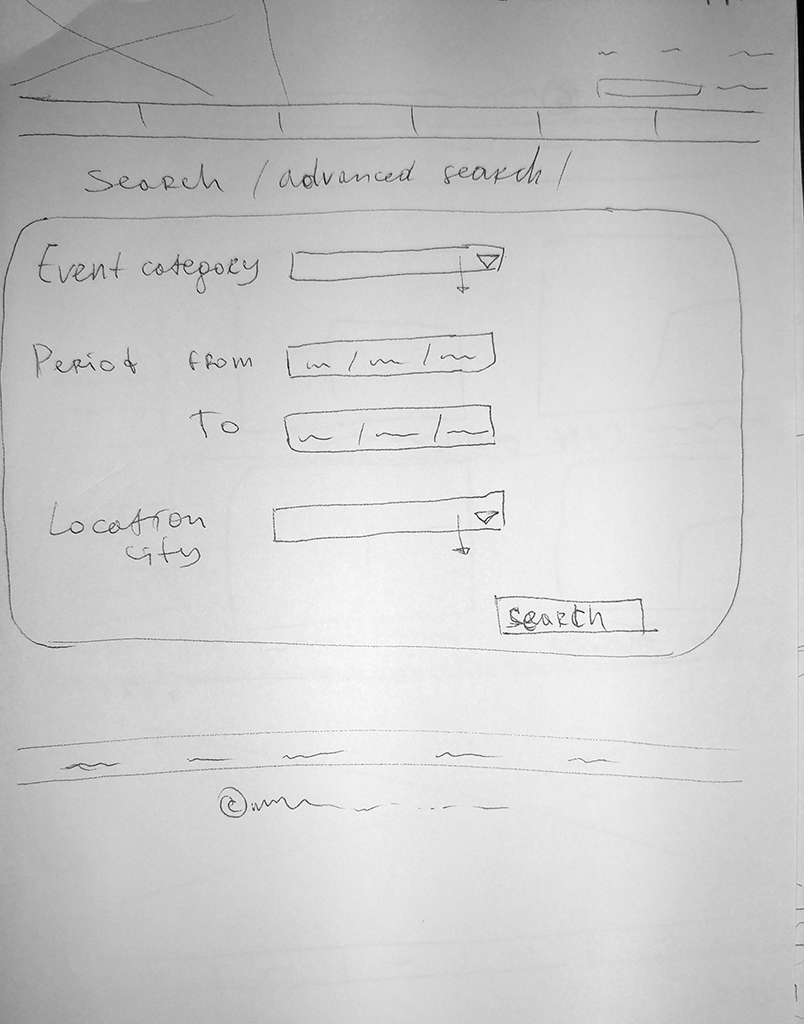 Search / advanced search /
Event category
Period from
To
Location
city
search
©